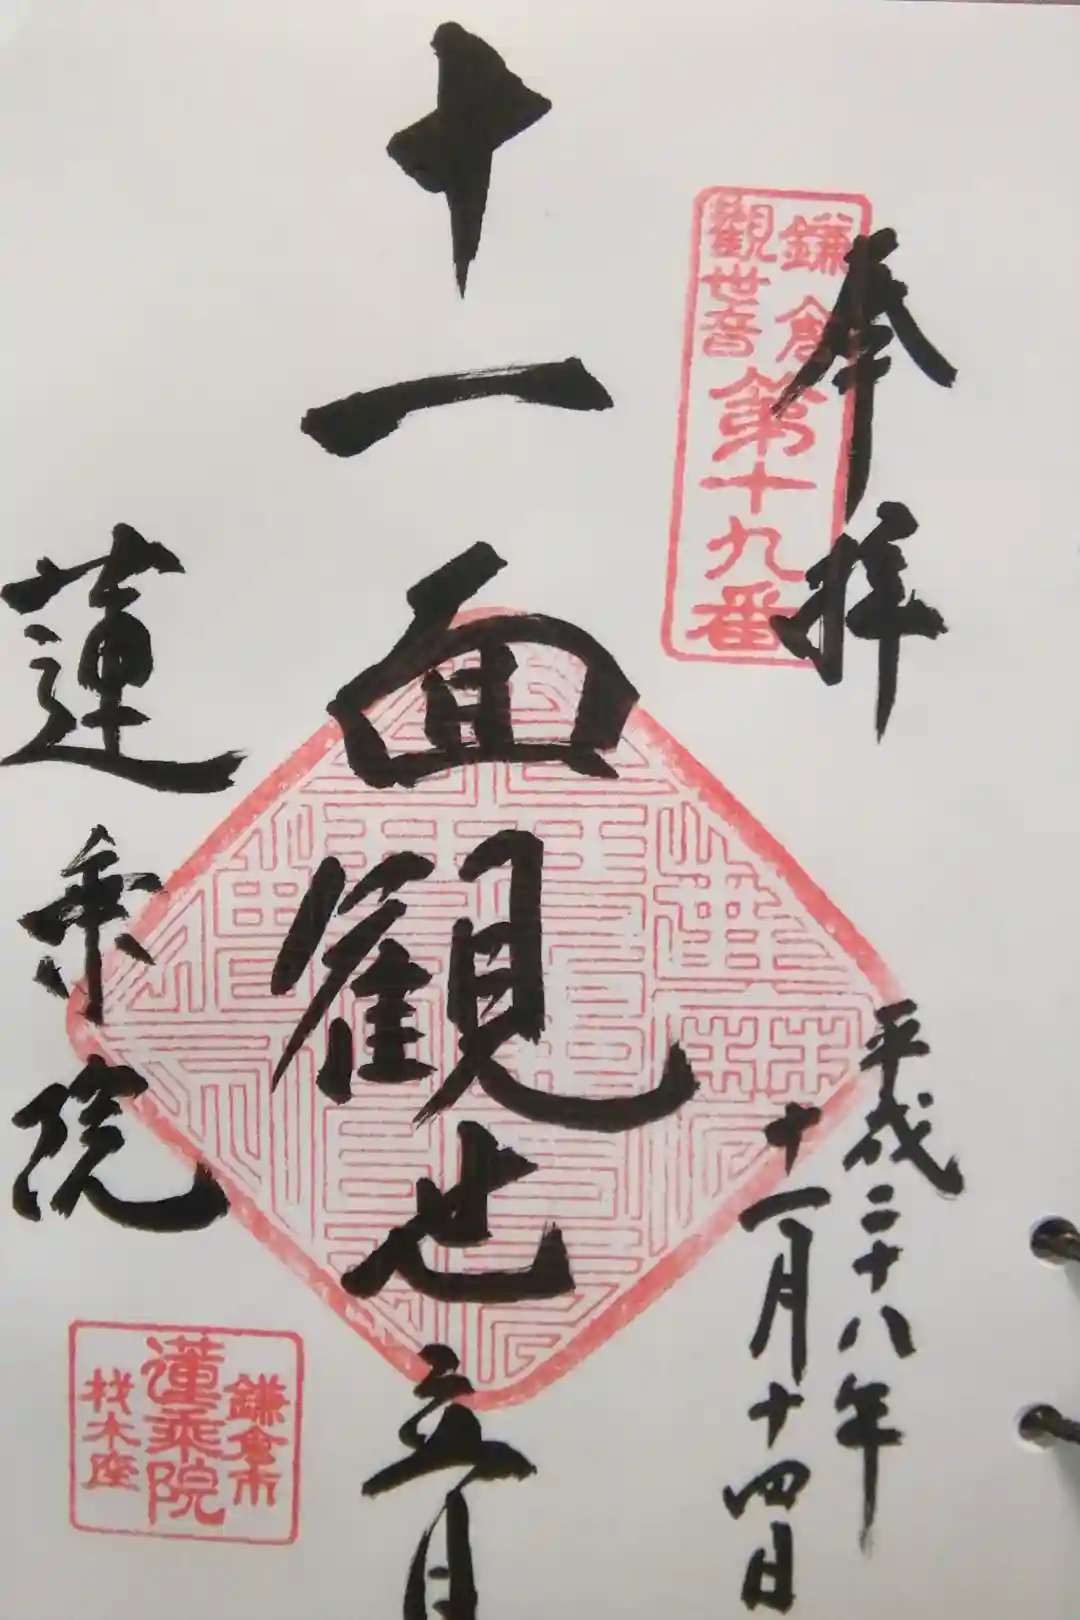 奉拝
鎌倉
観世音
第十九番
平成二十八年
十一月十四日
十一面観世音
蓮乗院
鎌倉市
蓮乗院
材木座